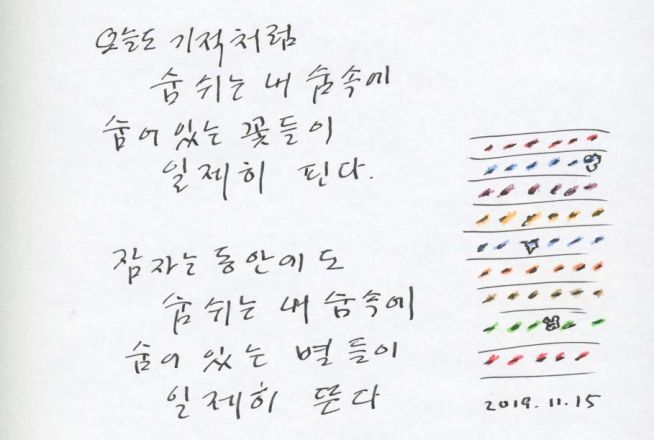 오늘도 기적처럼
숨 쉬는 내 숨속에
숨어 있는 꽃들이
일제히 핀다.
잠자는 동안에도
숨 쉬는 내 숨속에
숨어 있는 별들이
일제히 뜬다
2019. 11. 15